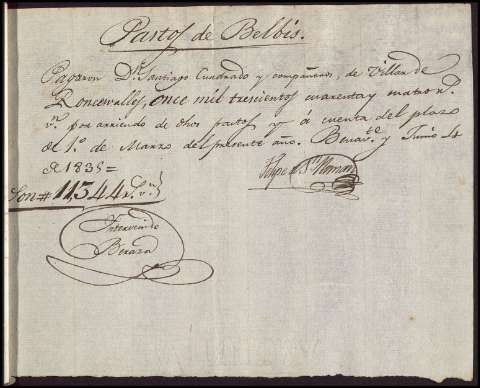 Pastos de Belbis.
Pagaron Dn. Santiago Cuadrado y compañeros, de Villar de
Roncevalles, once mil tresientos cuarenta y cuatro r.s
v.n por arriendo de dhos pastos y á cuenta del plazo
de 1.º de Marzo del presente año. Benav.te y Junio 4
de 1835=
Felipe
Son # 11,344 r.s v.n
Intervenido
Beraza